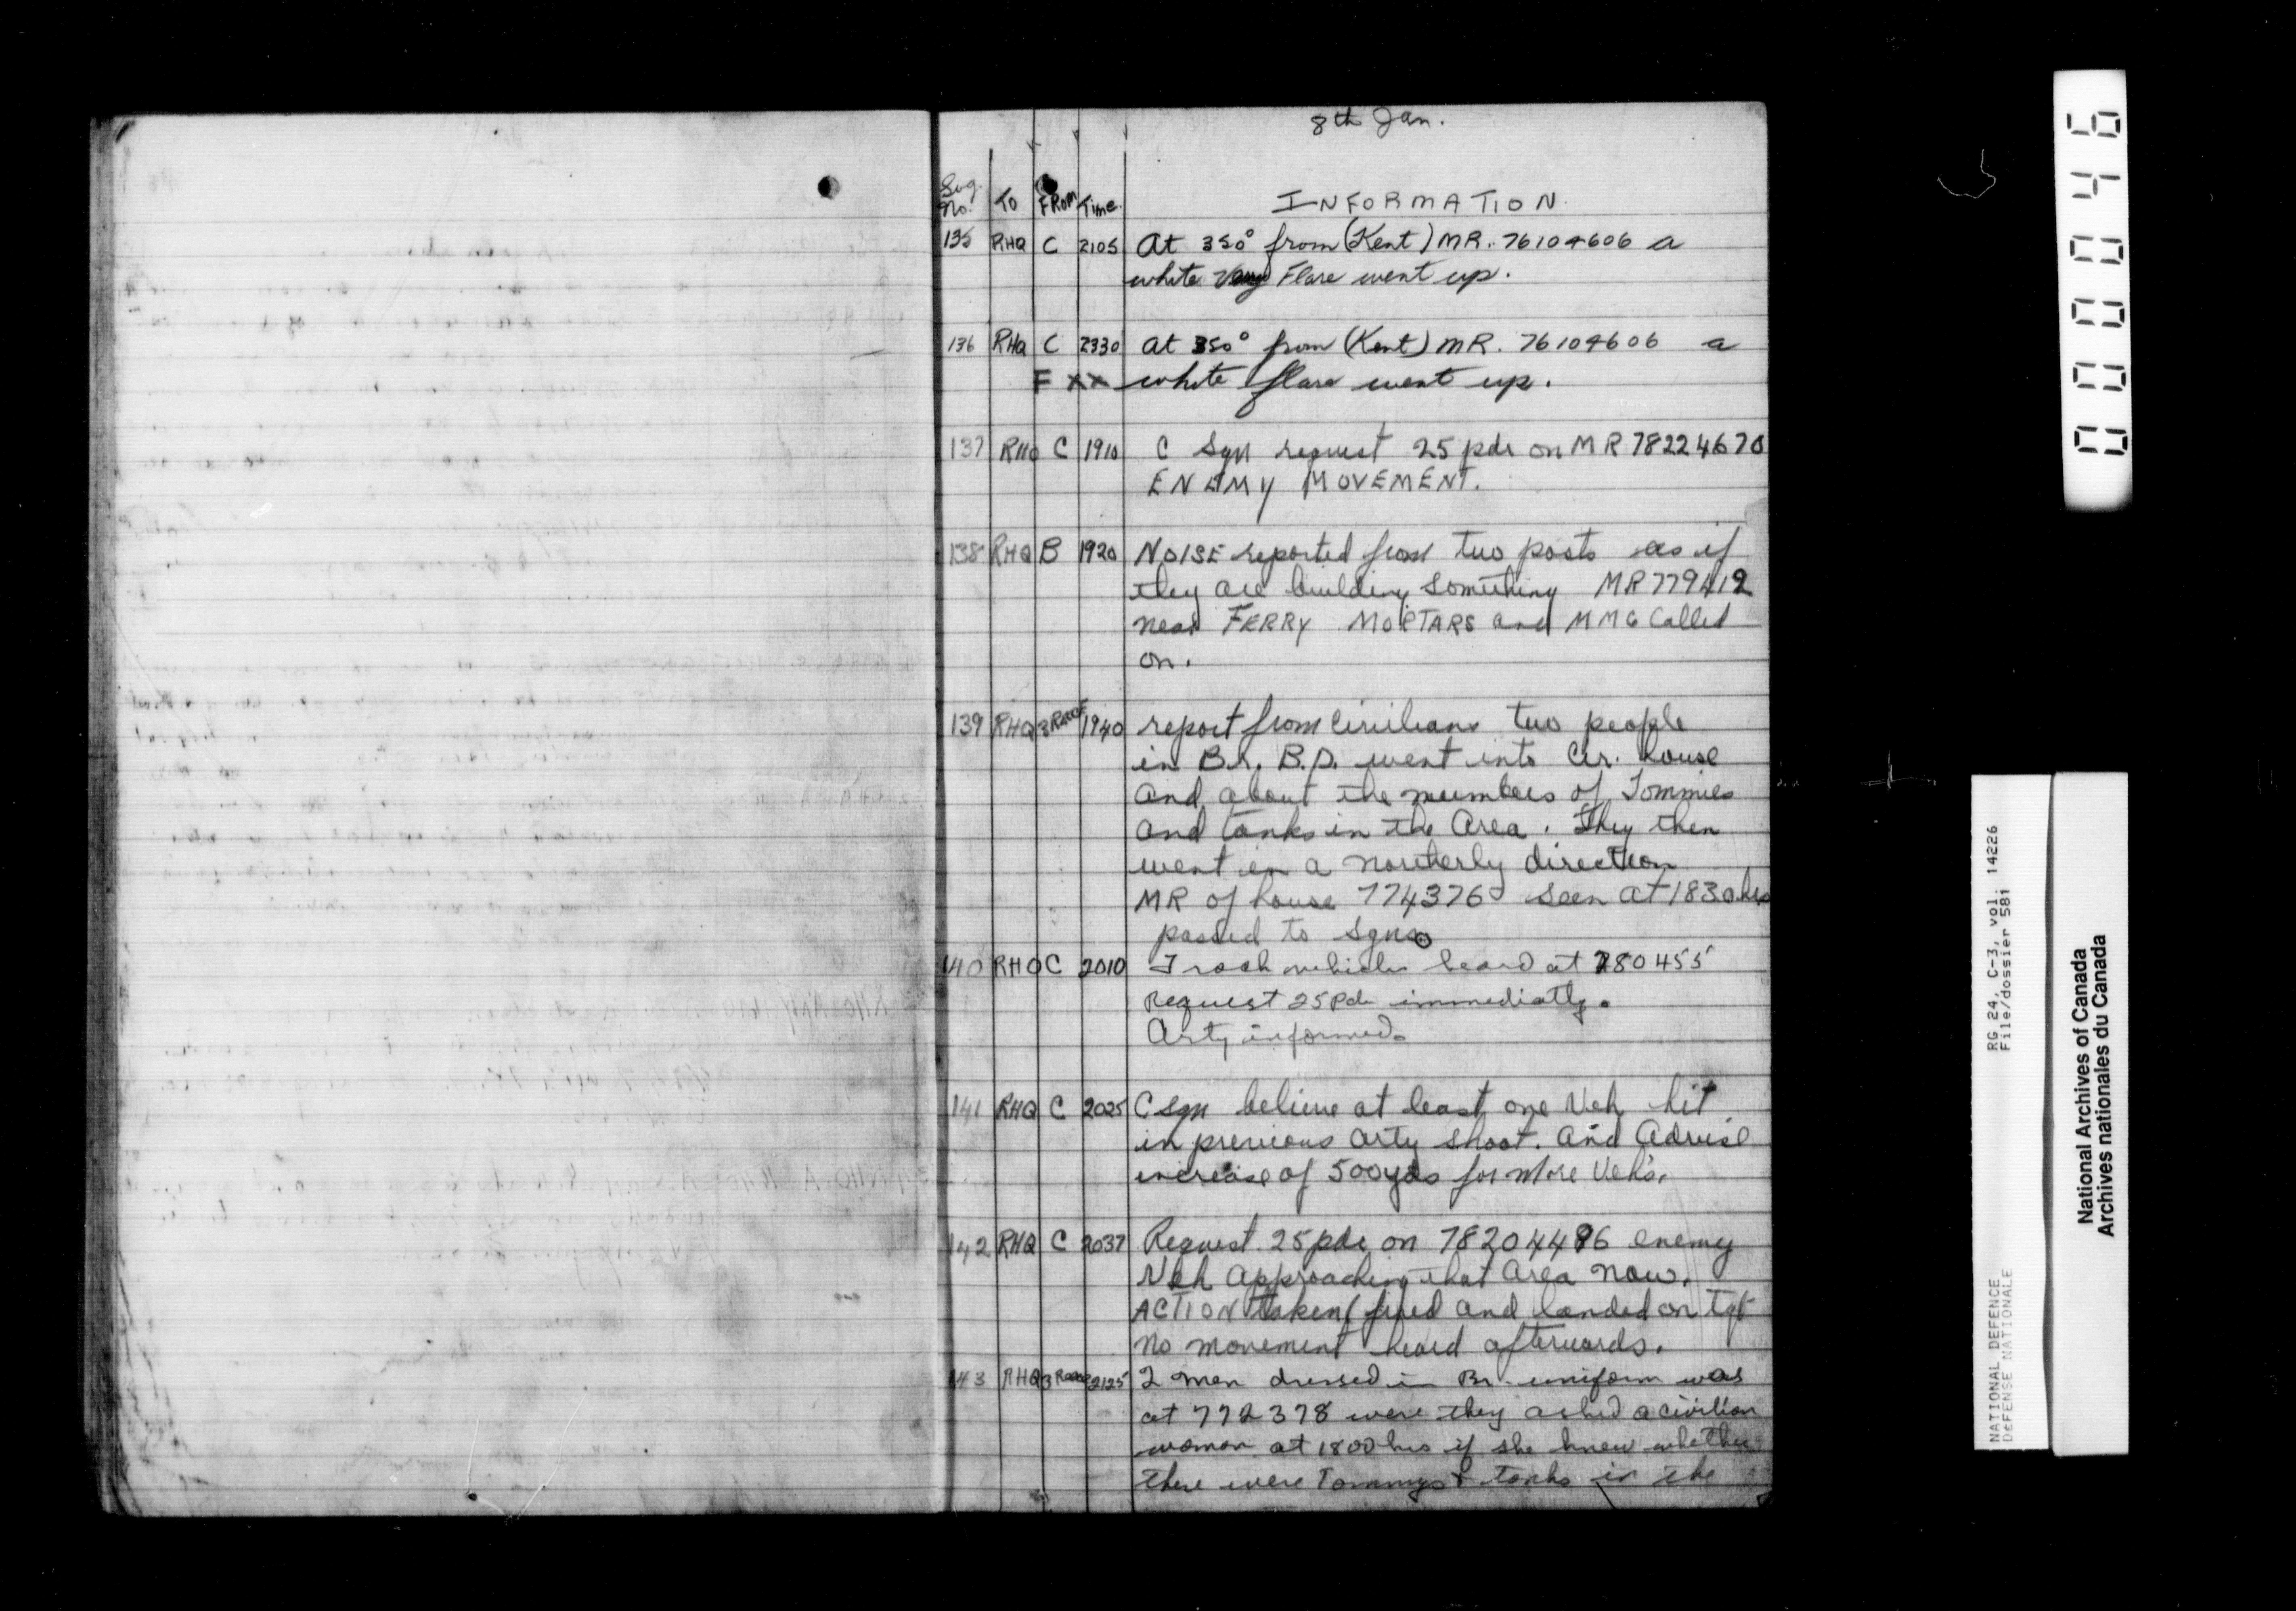 8th Jan.
Sug. No. To FROM Time. INFORMATION.
135 RHQ C 2105 At 350° from (Kent) MR. 76104606 a
white Very Flare went up.
136 RHQ C 2330 at 350° from (Kent) MR. 76104606 a
F xx white flare went up.
137 RHQ C 1910 C Sqn request 25 pdr on MR 78224670
ENEMY MOVEMENT.
138 RHQ B 1920 NOISE reported from two posts as if
they are building something MR 779412
near FERRY MORTARS and MMG Called
on.
139 RHQ 1940 report from Civilians two people
in Br. B.D. went into Civ. house
and about the numbers of Tommies
and tanks in the Area. They then
went in a northerly direction
MR of house 774376 seen at 1830 hrs
passed to Sqns.
140 RHQ C 2010 Track vehicles heard at 780455
Request 25 Pdr immediatly.
Arty informed.
141 RHQ C 2025 C Sqn believe at least one Veh hit
in previous arty shoot. And Advise
increase of 500 yds for More Veh's.
142 RHQ C 2037 Request 25 pdr on 78204496 enemy
Veh Approaching that Area Now.
ACTION taken fired and landed on tgt
No movement heard afterwards.
143 RHQ 2125 2 men dressed in Br. uniform was
at 772378 were they asked a civilian
woman at 1800 hrs if she knew whether
there were Tommys & tanks in the
000046
RG 24, C-3, vol. 14226
File/dossier 581
NATIONAL DEFENCE
DEFENSE NATIONALE
National Archives of Canada
Archives nationales du Canada